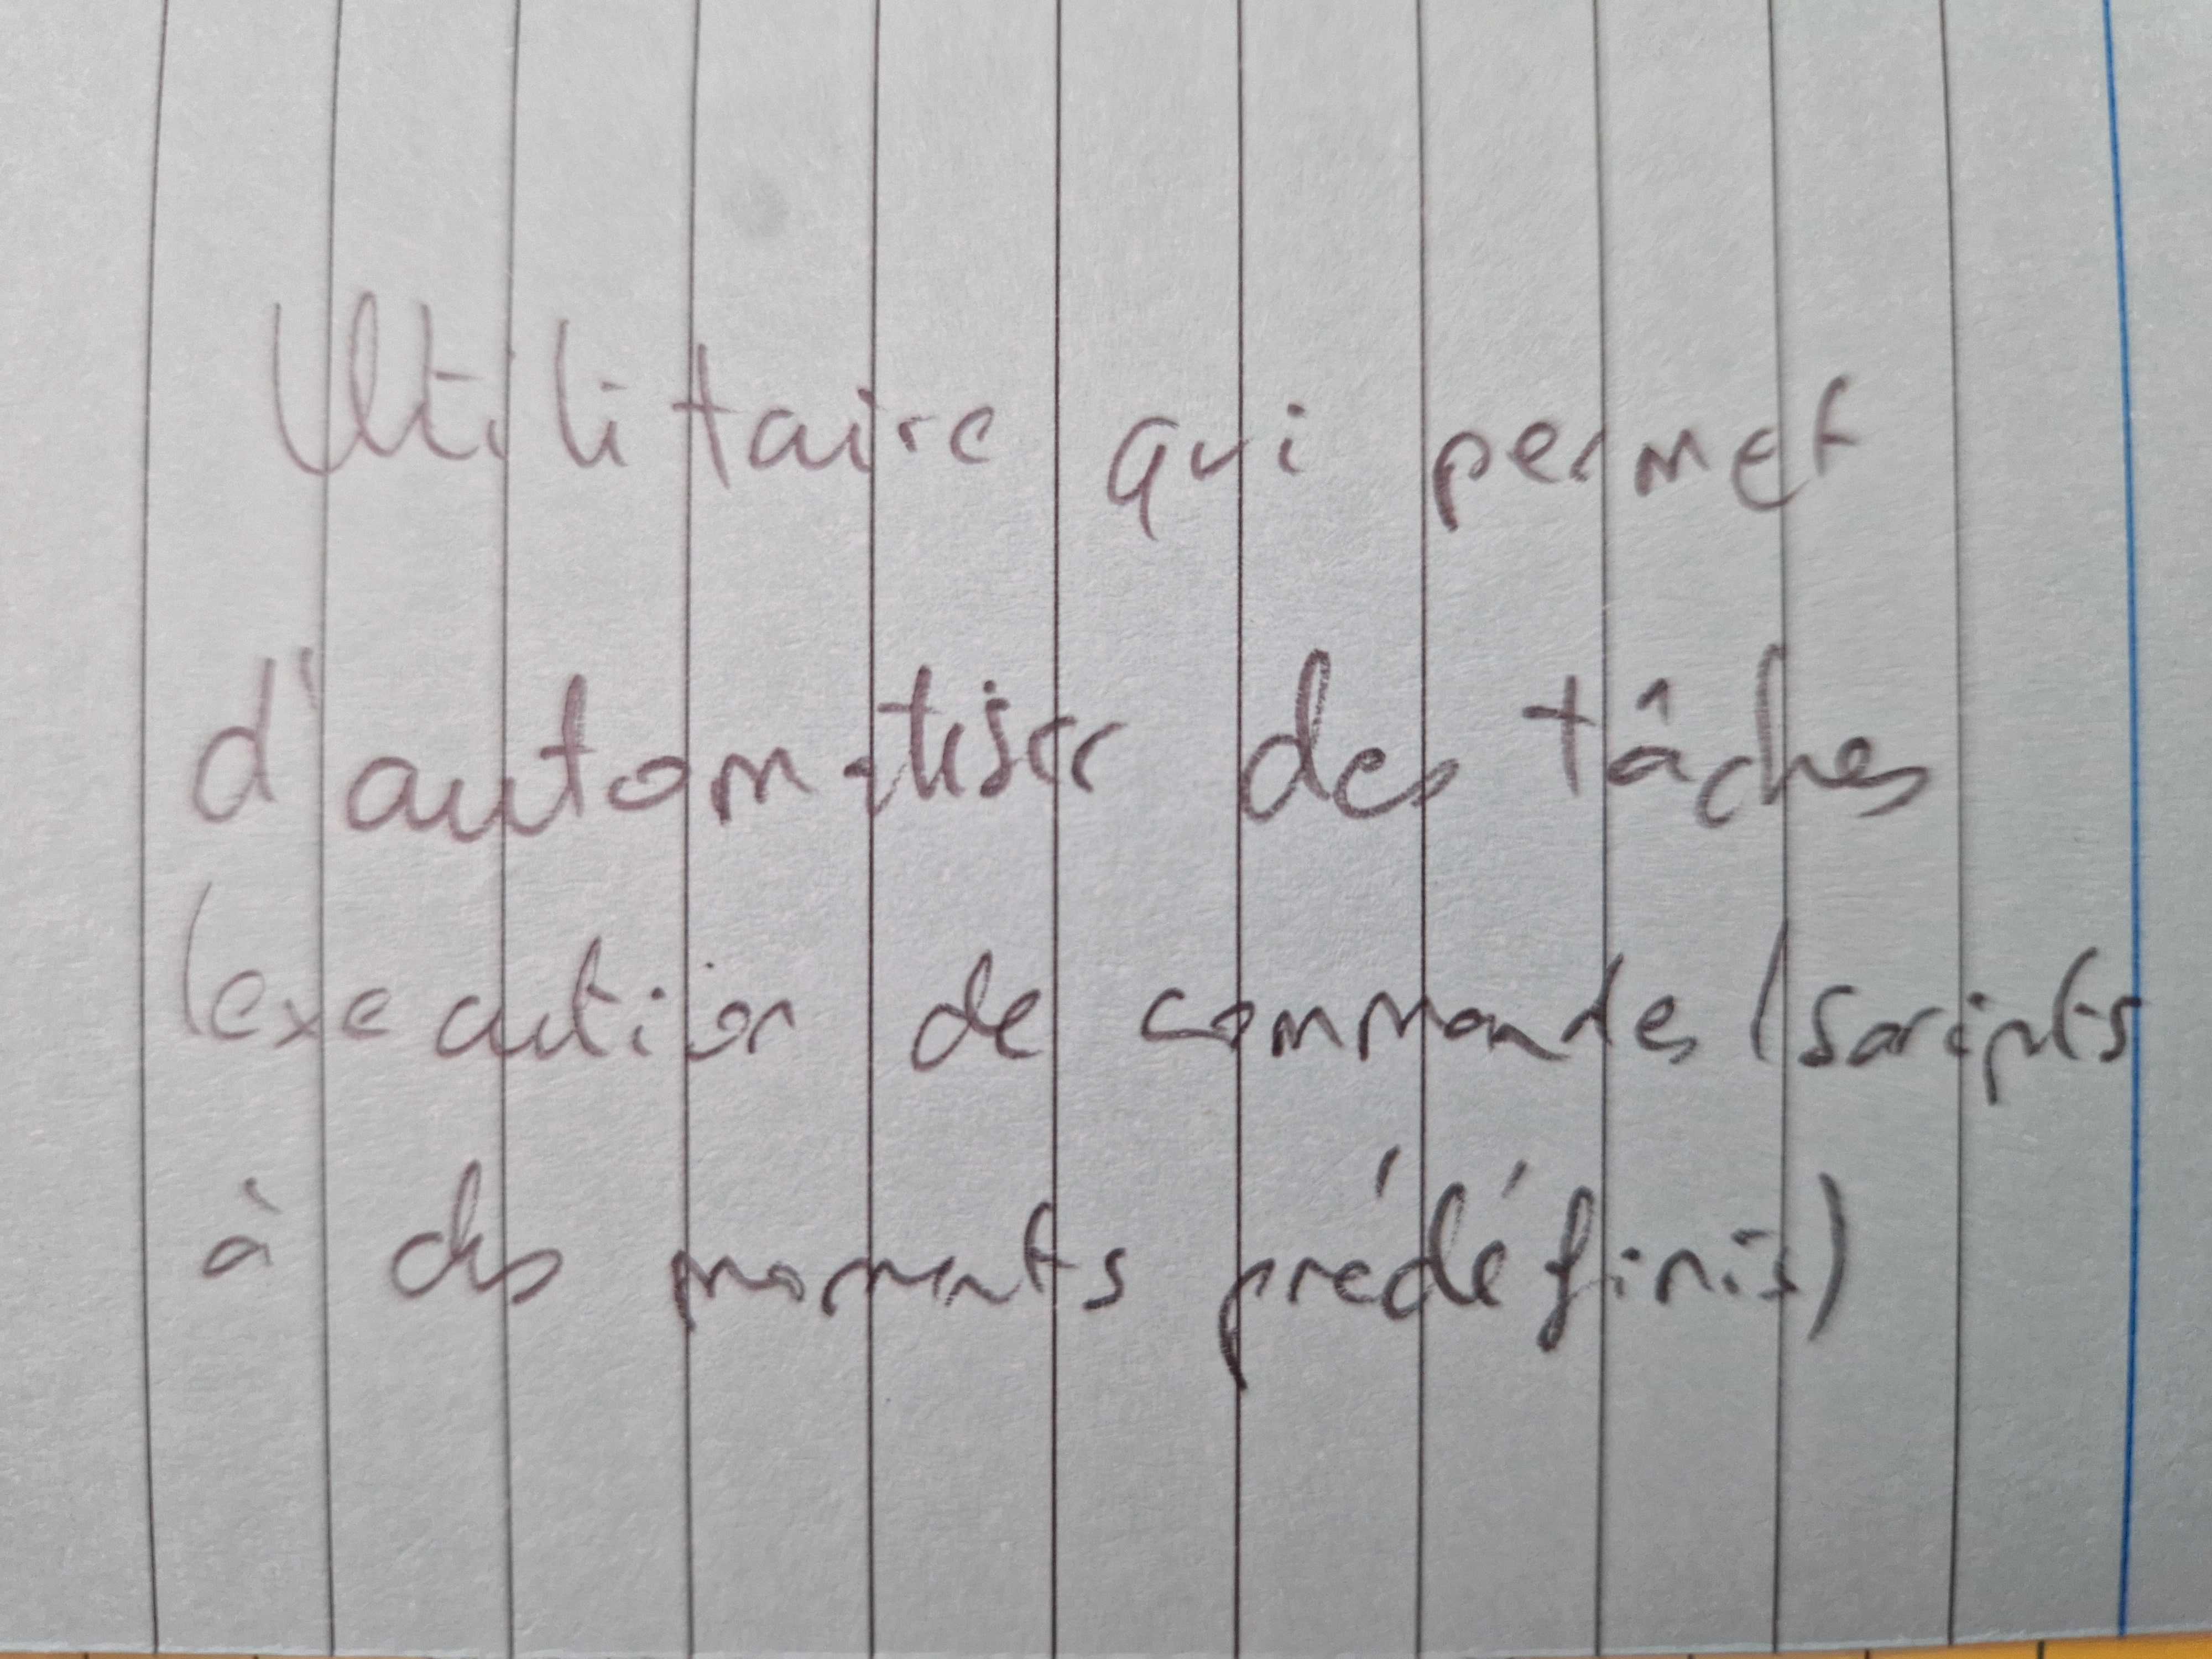 Utilitaire qui permet
d'automatiser des tâches
(execution de commandes (scripts
à des moments prédéfinis)